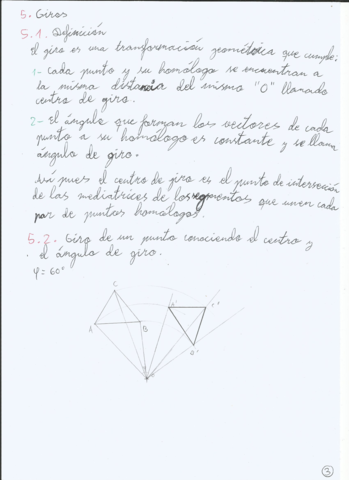 5. Giros
5.1. Definición
El giro es una transformación geométrica que cumple:
1- Cada punto y su homólogo se encuentran a
la misma distancia del mismo "O" llamado
centro de giro.
2- El ángulo que forman los vectores de cada
punto a su homólogo es constante y se llama
ángulo de giro.
Así pues el centro de giro es el punto de intersección
de las mediatrices de los segmentos que unen cada
par de puntos homólogos.
5.2. Giro de un punto conociendo el centro y
el ángulo de giro.
φ=60°
C
A
B
A'
3